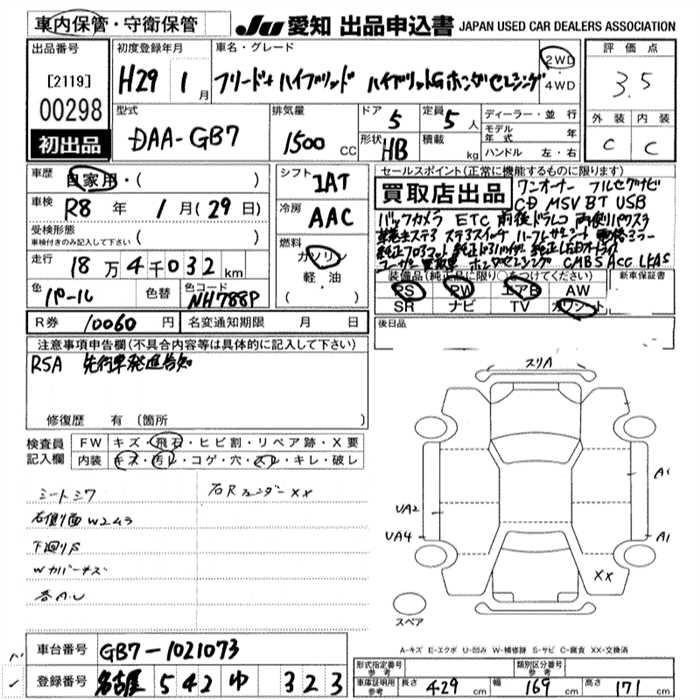 車内保管・守衛保管
JU 愛知 出品申込書 JAPAN USED CAR DEALERS ASSOCIATION
出品番号
[2119]
00298
初出品
初度登録年月
H29 1月
車名・グレード
フリード+ハイブリッド ハイブリッドGホンダセンシング
2WD
4WD
評価点
3.5
外装 内装
C C
型式
DAA-GB7
排気量
1500 CC
ドア 5
定員 5人
形状 HB
積載 kg
ディーラー・並行
モデル年式 年
ハンドル 左・右
車歴
自家用・( )
車検
R8年 1月(29日)
受検形態
車検付きのみ記入して下さい ( )
走行
18万4千032km
色
パール
色替
色コード
NH788P
シフト
IAT
冷房
AAC
燃料
ガソリン
軽・油
( )
セールスポイント(正常に機能するものに限ります)
買取店出品
ワンオーナー フルセグナビ
CD MSV BT USB
バックカメラ ETC 前後ドラレコ 両側パワスラ
CMBS ACC LKAS
装備品(純正品に限り○をつけてください)
PS PW エアB AW
SR ナビ TV カワシート
新車保証書
後日品
R券 10060円
名変通知期限 月 日
注意事項申告欄(不具合内容等は具体的に記入して下さい)
RSA 先行車発進告知
修復歴 有 〔箇所 〕
検査員記入欄
FW キズ・飛石・ヒビ割・リペア跡・X要
内装 キズ・汚レ・コゲ・穴・スレ・キレ・破レ
シートシワ
右Rフェンダー XX
右側面W2ヶ3
下廻りS
Wカバーキズ
スリA
A1
UA2
UA4
A1
XX
スペア
A-キズ E-エクボ U-凹み W-補修跡 S-サビ C-腐食 XX-交換済
車台番号
GB7-1021073
登録番号
名古屋 542 ゆ 323
形式指定番号
参考
類別区分番号
参考
車庫証明用
参考
長さ 429cm
幅 169cm
高さ 171cm